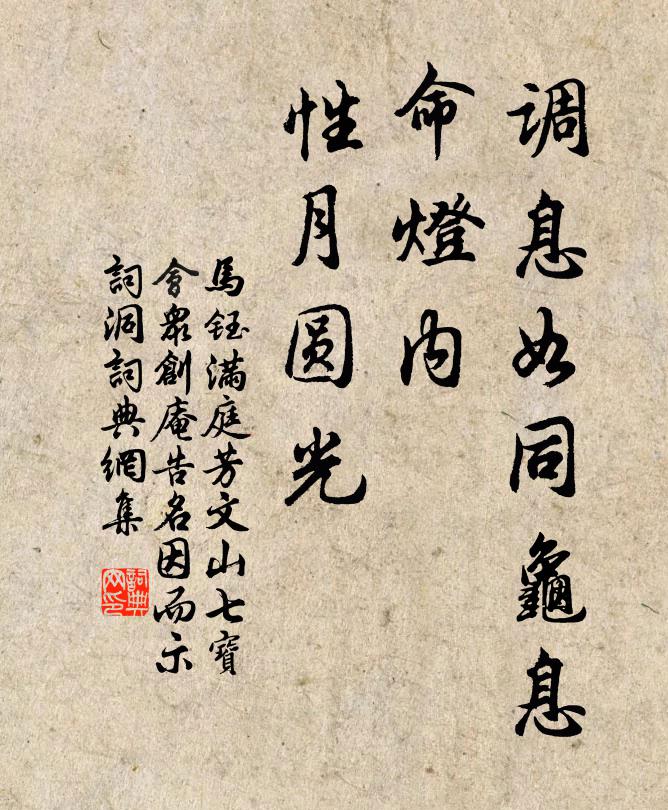 调息如同龜息
命燈内
性月圆光
馬鈺满庭芳文山七寶
會眾創庵告名因而示
詞洞詞典網集
詞典
网印